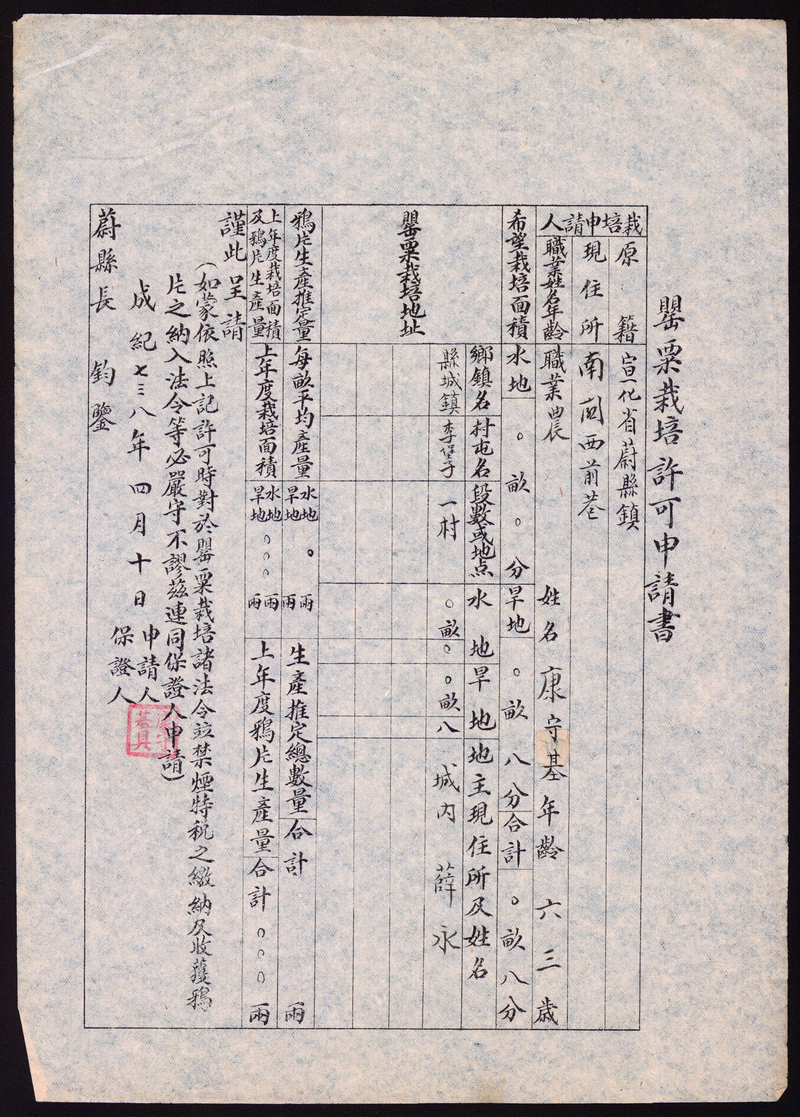 罌粟栽培許可申請書
栽培申請人
原籍 宣化省蔚縣鎮
現住所 南関西前巷
職業姓名年齡 職業農 姓名 康守基 年齡 六三歲
希望栽培面積 水地 〇畝〇分 旱地 〇畝八分 合計 〇畝八分
罌粟栽培地址
鄉鎮名 村屯名 段數或地点 水地 旱地 地主現住所及姓名
縣城鎮 李堡子 一村 〇畝〇 〇畝八 城内 薛永
鴉片生產推定量 每畝平均產量 水地 〇 兩 旱地 兩 生產推定總數量 合計 兩
上年度栽培面積及鴉片生產量 上年度栽培面積 水地 〇〇〇 兩 旱地 兩 上年度鴉片生產量 合計 〇〇〇 兩
謹此呈請
(如蒙依照上記許可時對於罌粟栽培諸法令竝禁煙特稅之繳納及收獲鴉
片之納入法令等必嚴守不謬茲連同保證人申請)
成紀七三八年四月十日 申請人
保證人
蔚縣長 鈞鑒